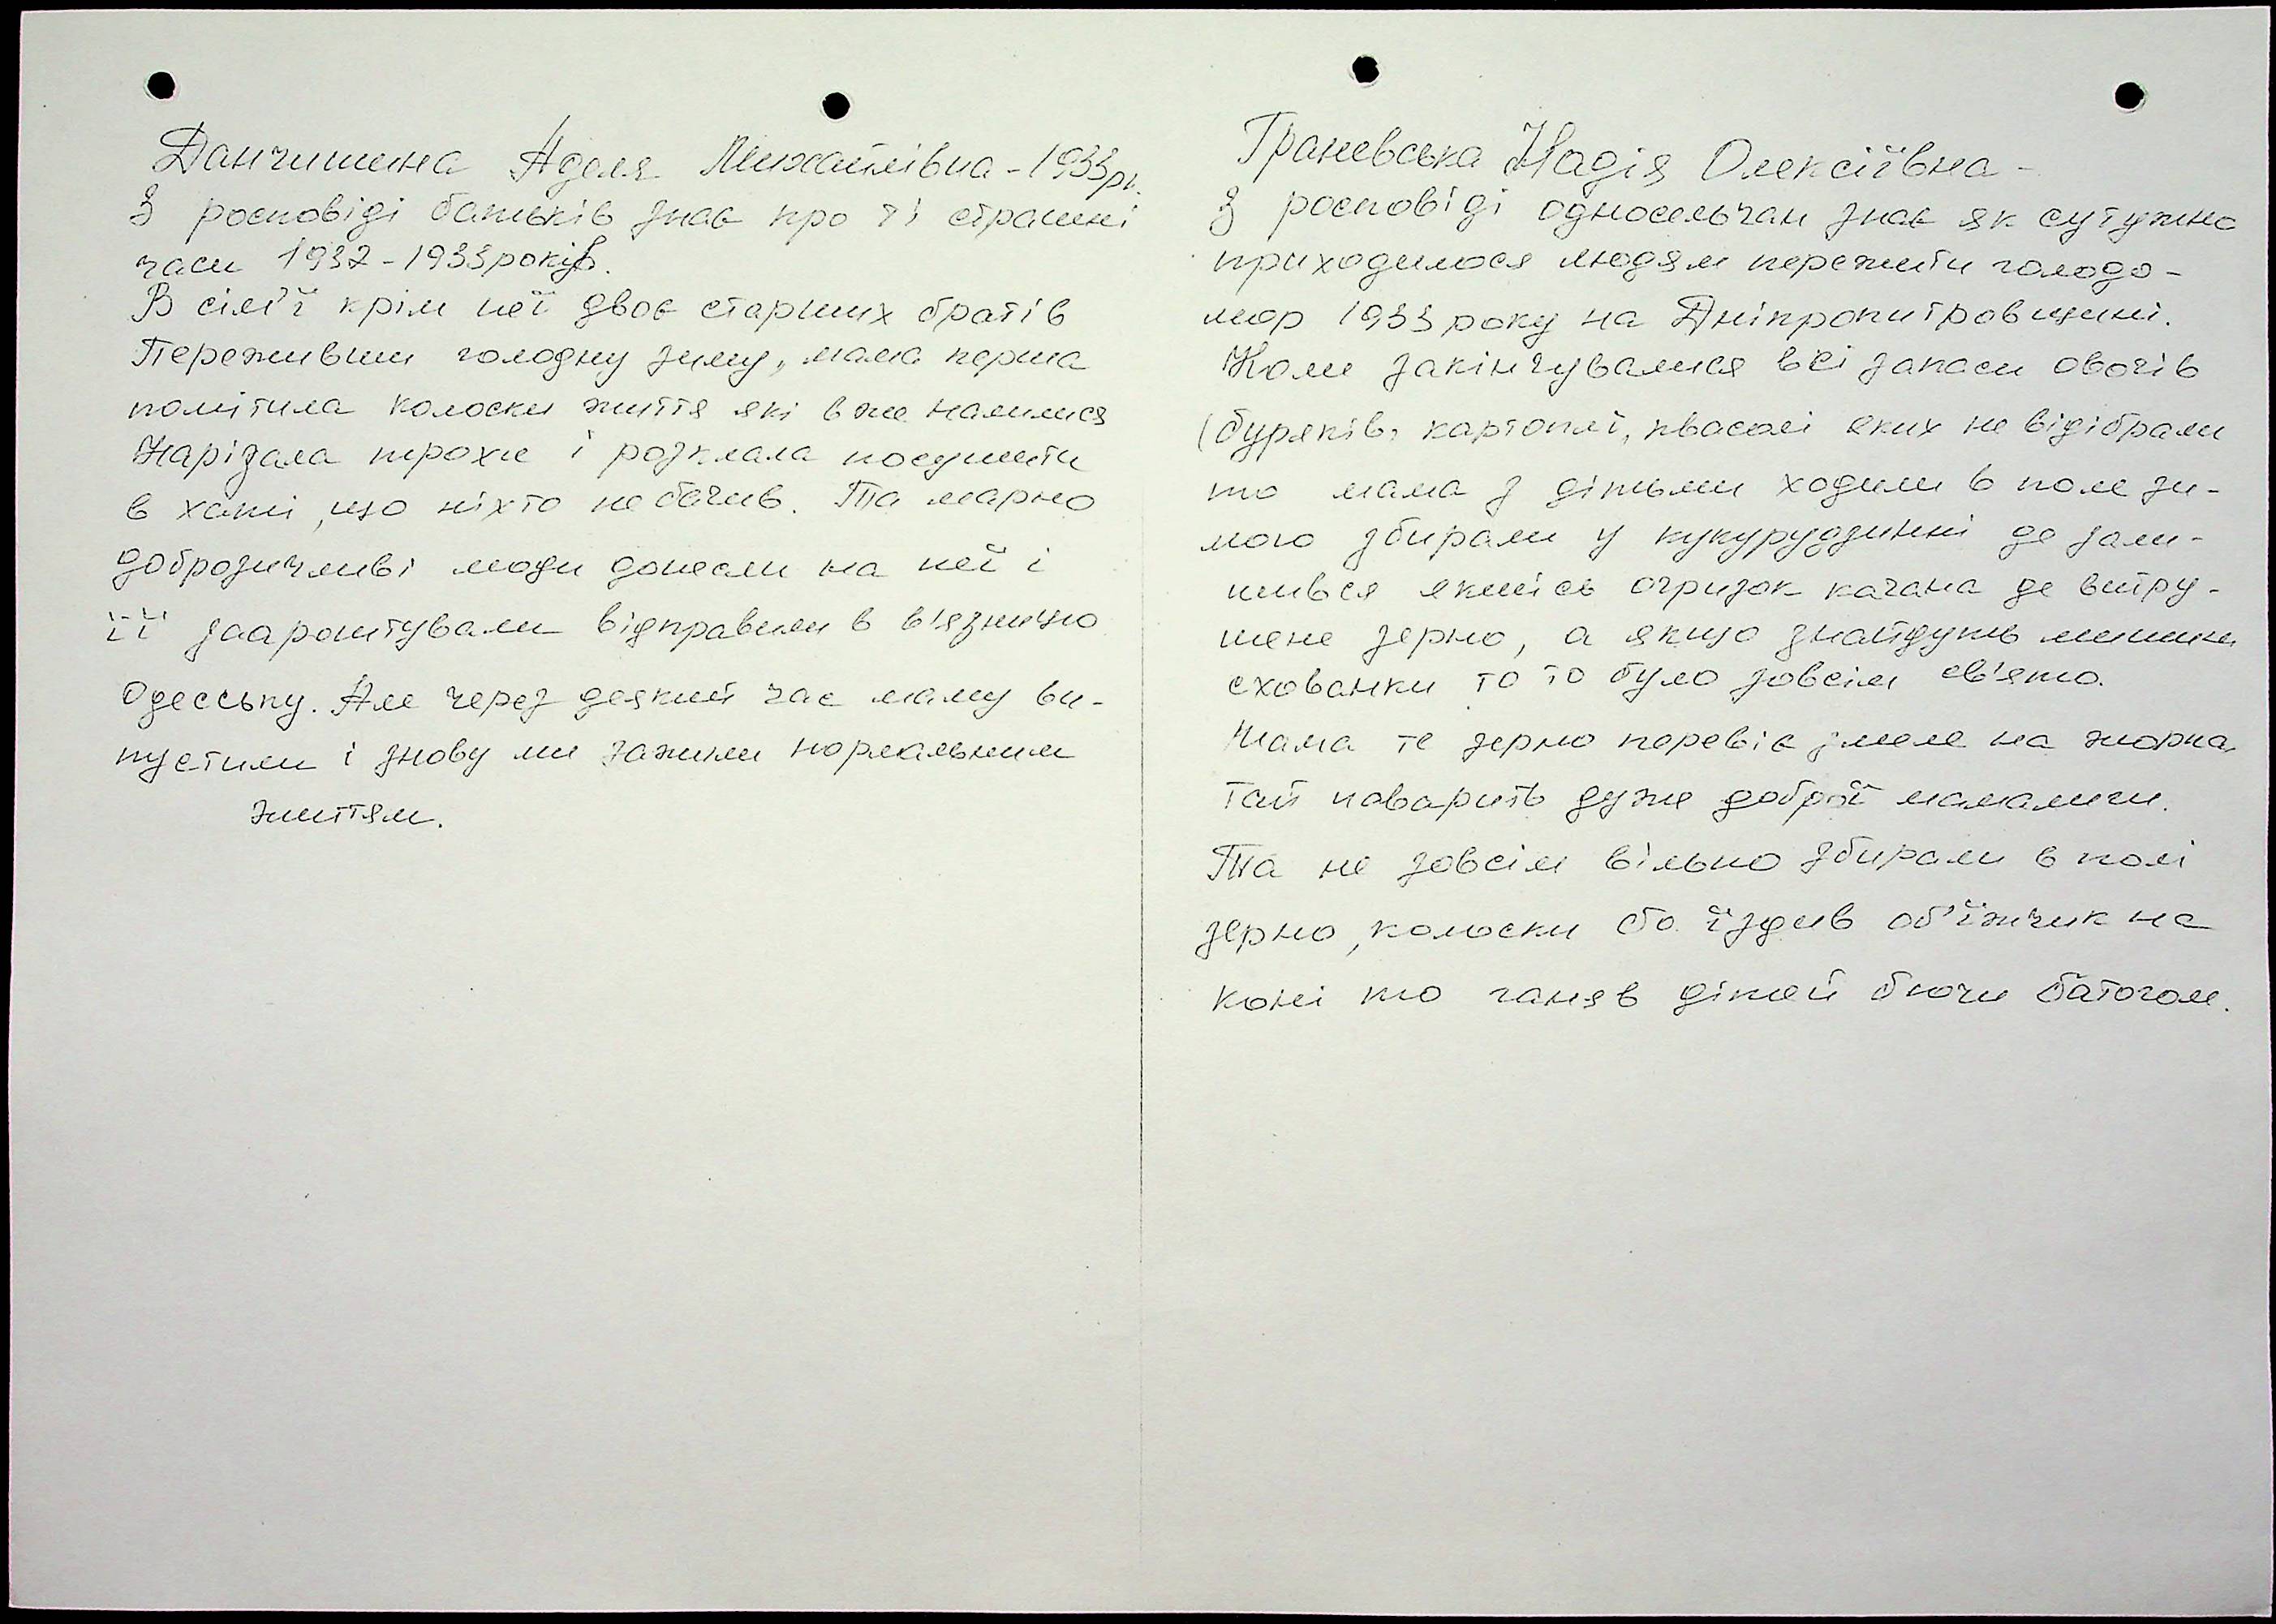 Данчишена Аделя Михайлівна - 1933рн.
З росповіді батьків знає про ті страшні
часи 1932-1933років.
В сім'ї крім неї двоє старших братів
Переживши голодну зиму, мама перша
помітила колоски життя які вже налилися
Нарізала трохи і розклала посушити
в хаті, що ніхто не бачив. Та марно
доброзичливі люди донесли на неї і
її заарештували відправили в в'язницю
Одесську. Але через деякий час маму ви-
пустили і знову ми зажили нормальним
життям.
Граневська Надія Олексіївна -
З росповіді односельчан знає як сутужно
приходилося людям пережити голодо-
мор 1933 року на Дніпропитровщині.
Коли закінчувалися всі запаси овочів
(буряків, картоплі, квасолі яких не відібрали
то мама з дітьми ходили в поле зи-
мою збирали у кукурудзинні де зали-
шився якийсь огризок качана де витру-
шене зерно, а якщо знайдуть мишини
схованки то то було зовсім св'ято.
Мама те зерно перевіє змеле на жорна
тай поварить дуже доброї мамалиги.
Та не зовсім вільно збирали в полі
зерно, колоски бо їздив об'їжчик на
коні то ганяв дітей бючи батогом.